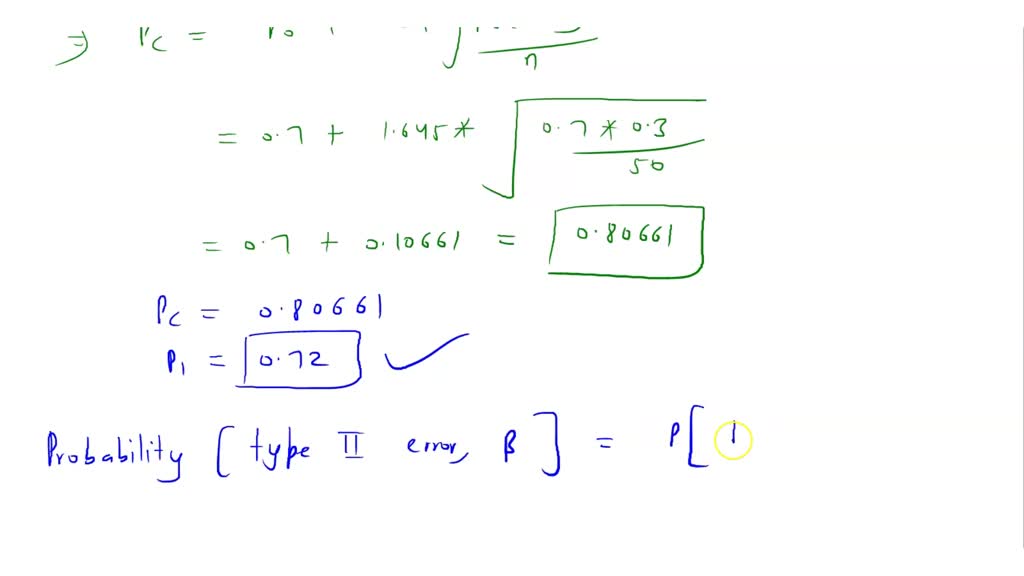 ⇒ Pc = Po
n
= 0.7 + 1.645 * √ 0.7 * 0.3
50
= 0.7 + 0.10661 = 0.80661
Pc = 0.80661
P1 = 0.72 ✓
Probability [ type II error, β ] = P[ 1